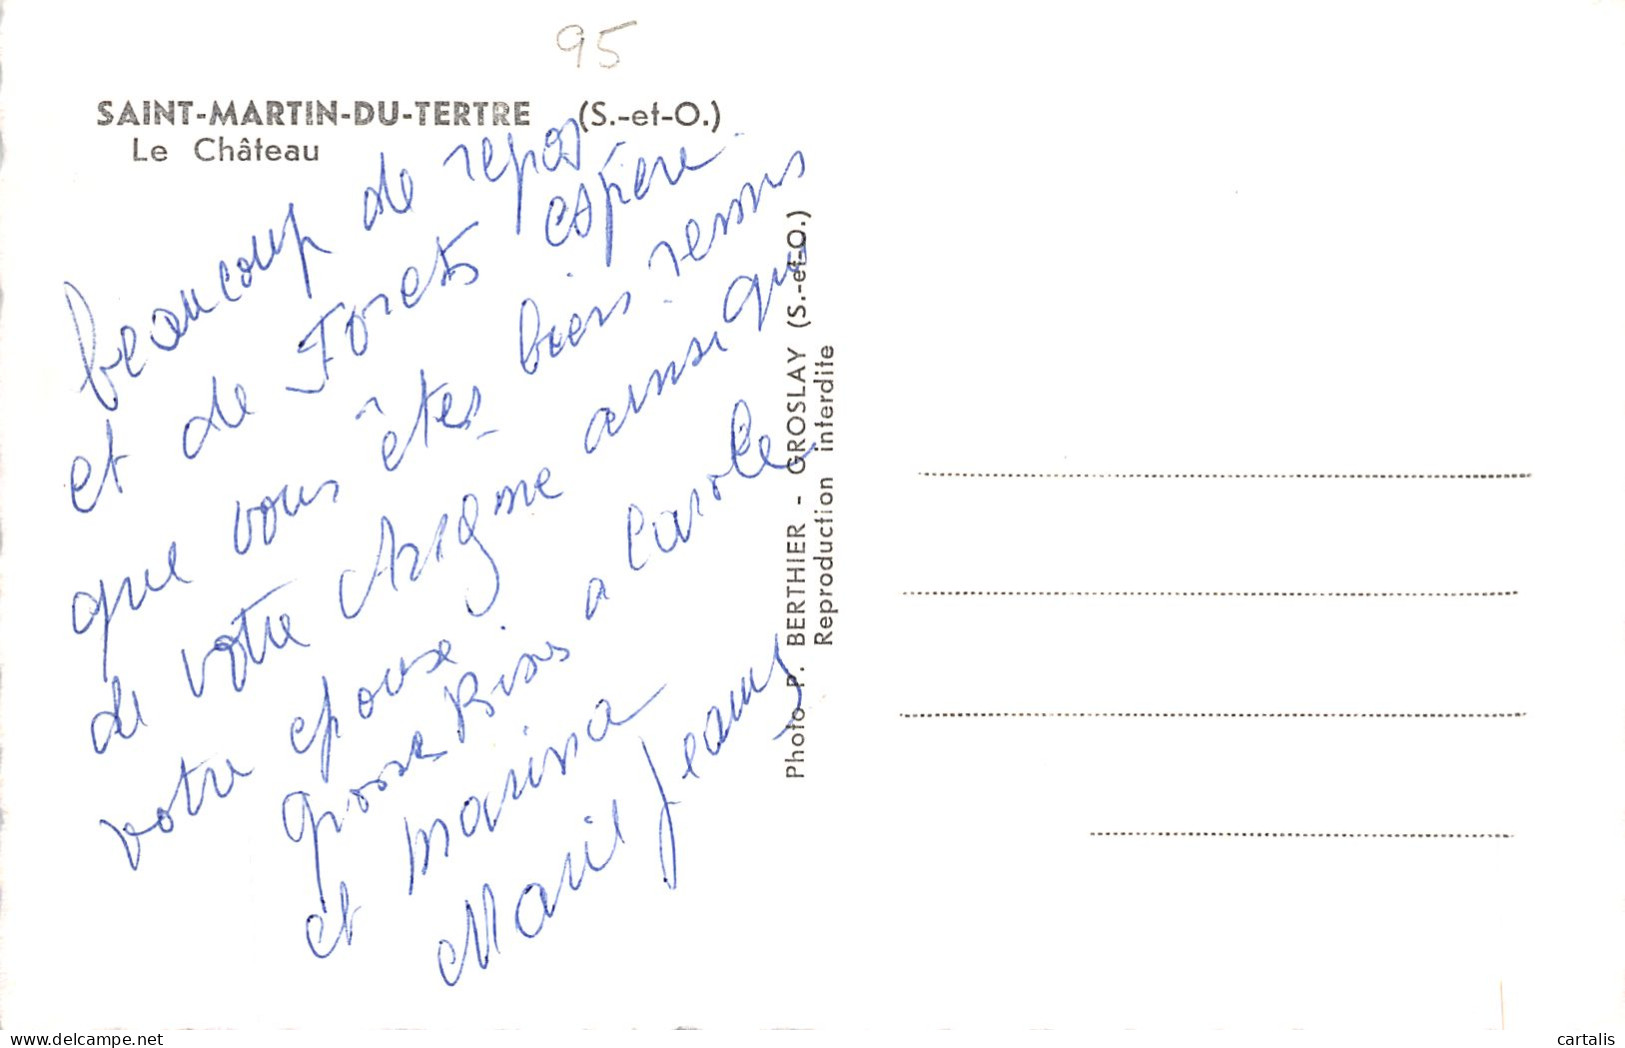 95
SAINT-MARTIN-DU-TERTRE (S.-et-O.)
Le Château
beaucoup de repos
et de Forets espère
que vous êtes bien remis
de votre ainsi que
votre epouse
grosses Bises a Carole
et marina
Marie Jeanne
Photo P. BERTHIER - GROSLAY (S.-et-O.)
Reproduction interdite
cartalis